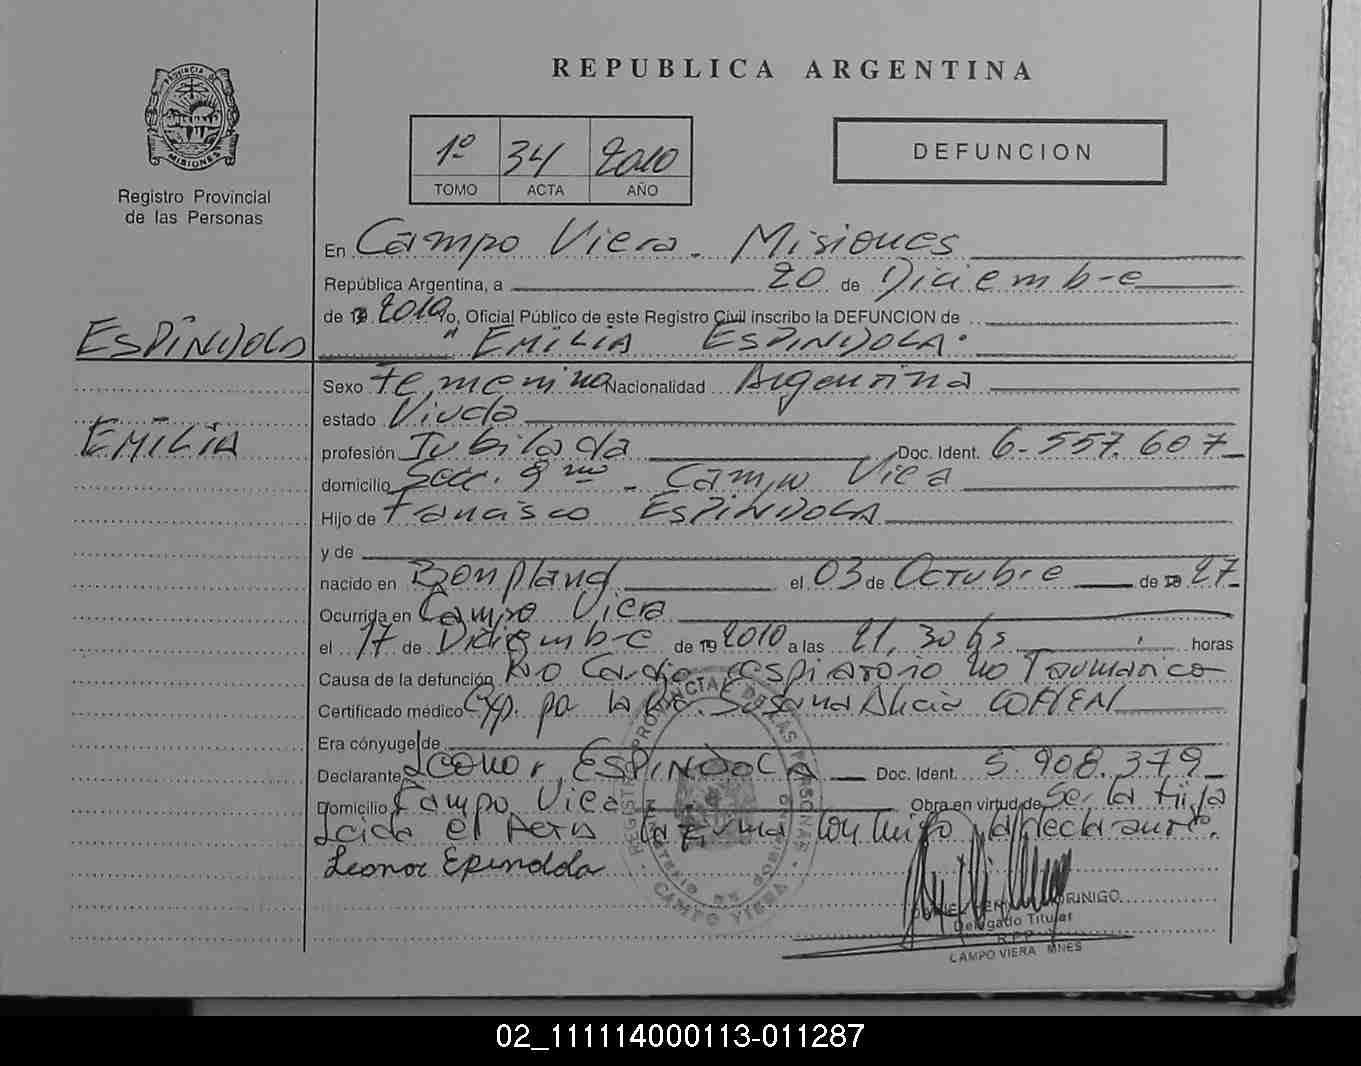 REPUBLICA ARGENTINA
PROVINCIA DE
MISIONES
Registro Provincial
de las Personas
1º 34 2010
TOMO ACTA AÑO
DEFUNCION
En Campo Viera. Misiones
República Argentina, a 20 de Diciembre
de 2010 Yo, Oficial Público de este Registro Civil inscribo la DEFUNCION de
ESPÍNDOLA
" EMILIA ESPINDOLA.
Sexo Femenina Nacionalidad Argentina
estado Viuda
EMILIA
profesión Jubilada Doc. Ident. 6.557.607
domicilio Secc. 9 Campo Viera
Hijo de Francisco ESPINDOLA
y de
nacido en Bonpland el 03 de Octubre de 27
Ocurrida en Campo Viera
el 17 de Diciembre de 19 2010 a las 21,30 hs horas
Causa de la defunción Paro Cardio respiratorio no Traumatico
Certificado médico Exp. por la Dra. Susana Alicia COHEN
Era cónyuge de
Declarante Leonor ESPINDOLA Doc. Ident. 5.908.379
Domicilio Campo Viera Obra en virtud de Ser la Hija
Leida el Acta la Firma conmigo la declarante.
Leonor Epindola
REGISTRO PROVINCIAL DE LAS PERSONAS
MINISTERIO DE GOBIERNO
CAMPO VIERA
MORINIGO
Delegado Titular
R.P.P.
CAMPO VIERA MNES
02_111114000113-011287